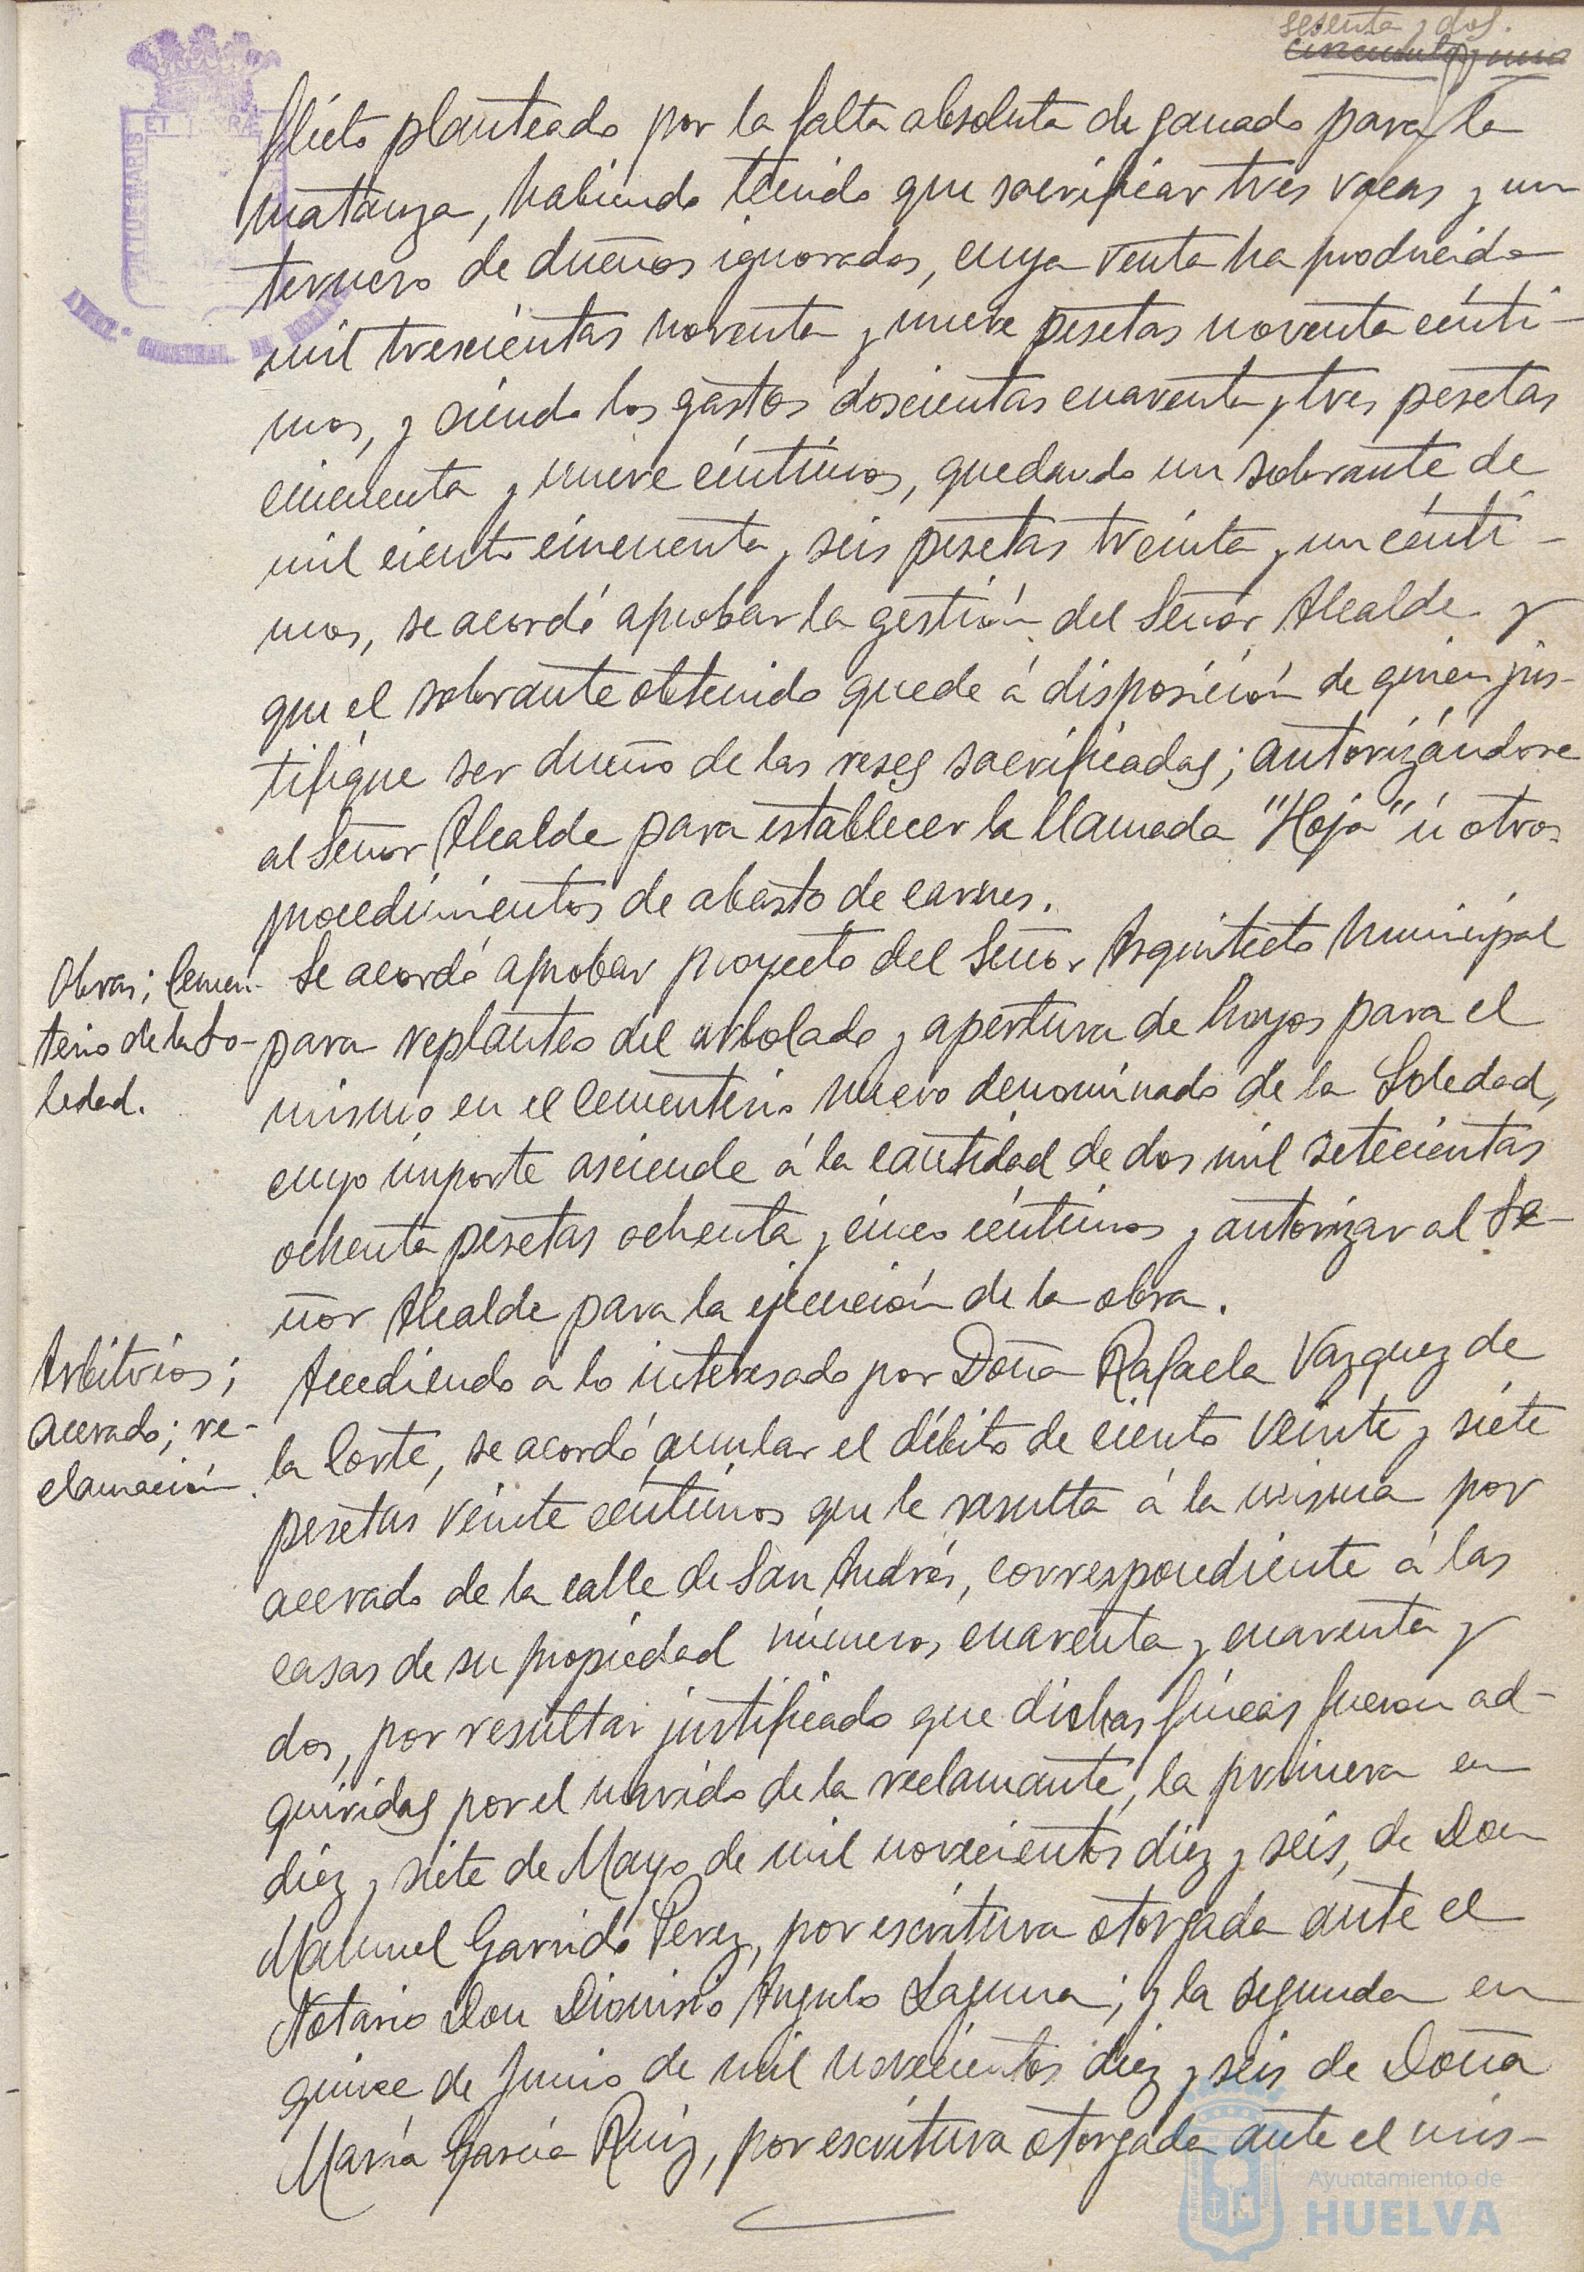 sesenta y dos.
cincuenta y uno
flicto planteado por la falta absoluta de ganado para la
matanza, habiendo tenido que sacrificar tres vacas y un
ternero de dueños ignorados, cuya venta ha producido
mil trescientas noventa y nueve pesetas noventa cénti-
mos, y siendo los gastos doscientas cuarenta y tres pesetas
cincuenta y nueve céntimos, quedando un sobrante de
mil ciento cincuenta y seis pesetas treinta y un cénti-
mos, se acordó aprobar la gestión del Señor Alcalde y
que el sobrante obtenido quede á disposición de quien jus-
tifique ser dueño de las reses sacrificadas; autorizándose
al Señor Alcalde para establecer la llamada "Hoja" ú otros
procedimientos de abasto de carnes.
Obras; Cemen-
terio de la So-
ledad.
Se acordó aprobar proyecto del Señor Arquitecto Municipal
para replanteo del arbolado y apertura de hoyos para el
mismo en el Cementerio nuevo denominado de la Soledad,
cuyo importe asciende á la cantidad de dos mil setecientas
ochenta pesetas ochenta y cinco céntimos y autorizar al Se-
ñor Alcalde para la ejecución de la obra.
Arbitrios;
acerado; re-
clamación.
Accediendo a lo interesado por Doña Rafaela Vazquez de
la Corte, se acordó anular el débito de ciento veinte y siete
pesetas veinte céntimos que le resulta á la misma por
acerado de la calle de San Andrés, correspondiente á las
casas de su propiedad números cuarenta y cuarenta y
dos, por resultar justificado que dichas fincas fueron ad-
quiridas por el marido de la reclamante, la primera en
diez y siete de Mayo de mil novecientos diez y seis, de Don
Manuel Garrido Perez, por escritura otorgada ante el
Notario Don Dionisio Angulo Laguna; y la segunda en
quince de Junio de mil novecientos diez y seis de Doña
María García Ruiz, por escritura otorgada ante el mis-
Ayuntamiento de
HUELVA